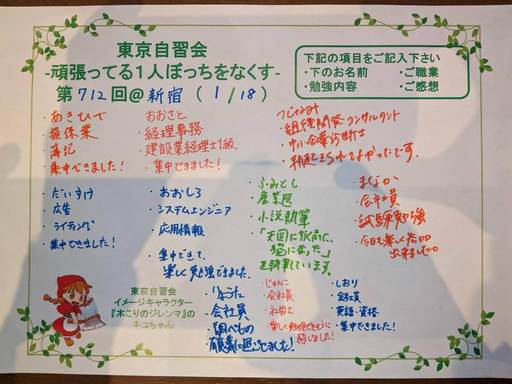 東京自習会
-頑張ってる1人ぼっちをなくす-
第712回@新宿(1/18)
下記の項目をご記入下さい
・下のお名前 ・ご職業
・勉強内容 ・ご感想
・あきひで
・損保業
・簿記
・集中できました!
・おおさと
・経理事務
・建設業経理士1級
・集中できました!
・組織開発コンサルタント
・中小企業診断士
・だいすけ
・広告
・ライティング
・集中できました!
・おおしろ
・システムエンジニア
・応用情報
・集中できて、
楽しく勉強できました。
・ふみとし
・産業医
・小説執筆
「天国に行く前に、
猫に会った」
を執筆しています。
・まさなか
・会社員
・試験勉強
・りょうた
・会社員
・調べもの
・じゅんこ
・会社員
・社労士
・しおり
・会社員
・英語・資格
・集中できました!
東京自習会
イメージキャラクター
『木こりのジレンマ』の
キコちゃん